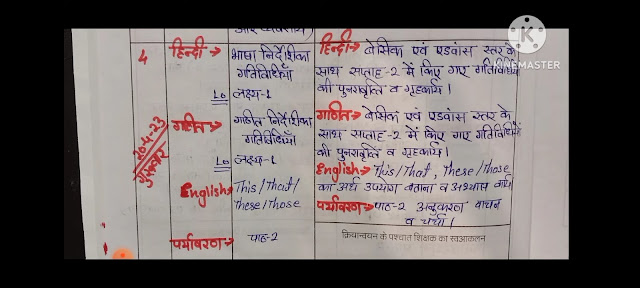 और व्यवसाय
4
हिन्दी→ भाषा निर्देशिका
गतिविधियाँ
Lo लक्ष्य-1
गणित→ गणित निर्देशिका
गतिविधियाँ
Lo लक्ष्य-1
English→ This/That/
These/Those
पर्यावरण→ पाठ-2
20-4-23
गुरुवार
हिन्दी→ बेसिक एवं एडवांस स्तर के
साथ सप्ताह-2 में किए गए गतिविधियों
की पुनरावृत्ति व गृहकार्य।
गणित→ बेसिक एवं एडवांस स्तर के
साथ सप्ताह-2 में किए गए गतिविधियों
की पुनरावृत्ति व गृहकार्य।
English→ This/That, These/Those
का अर्थ उपयोग बताना व अभ्यास कार्य।
पर्यावरण→ पाठ-2 अनुकरण वाचन
व चर्चा।
क्रियान्वयन के पश्चात शिक्षक का स्वआकलन
KINEMASTER